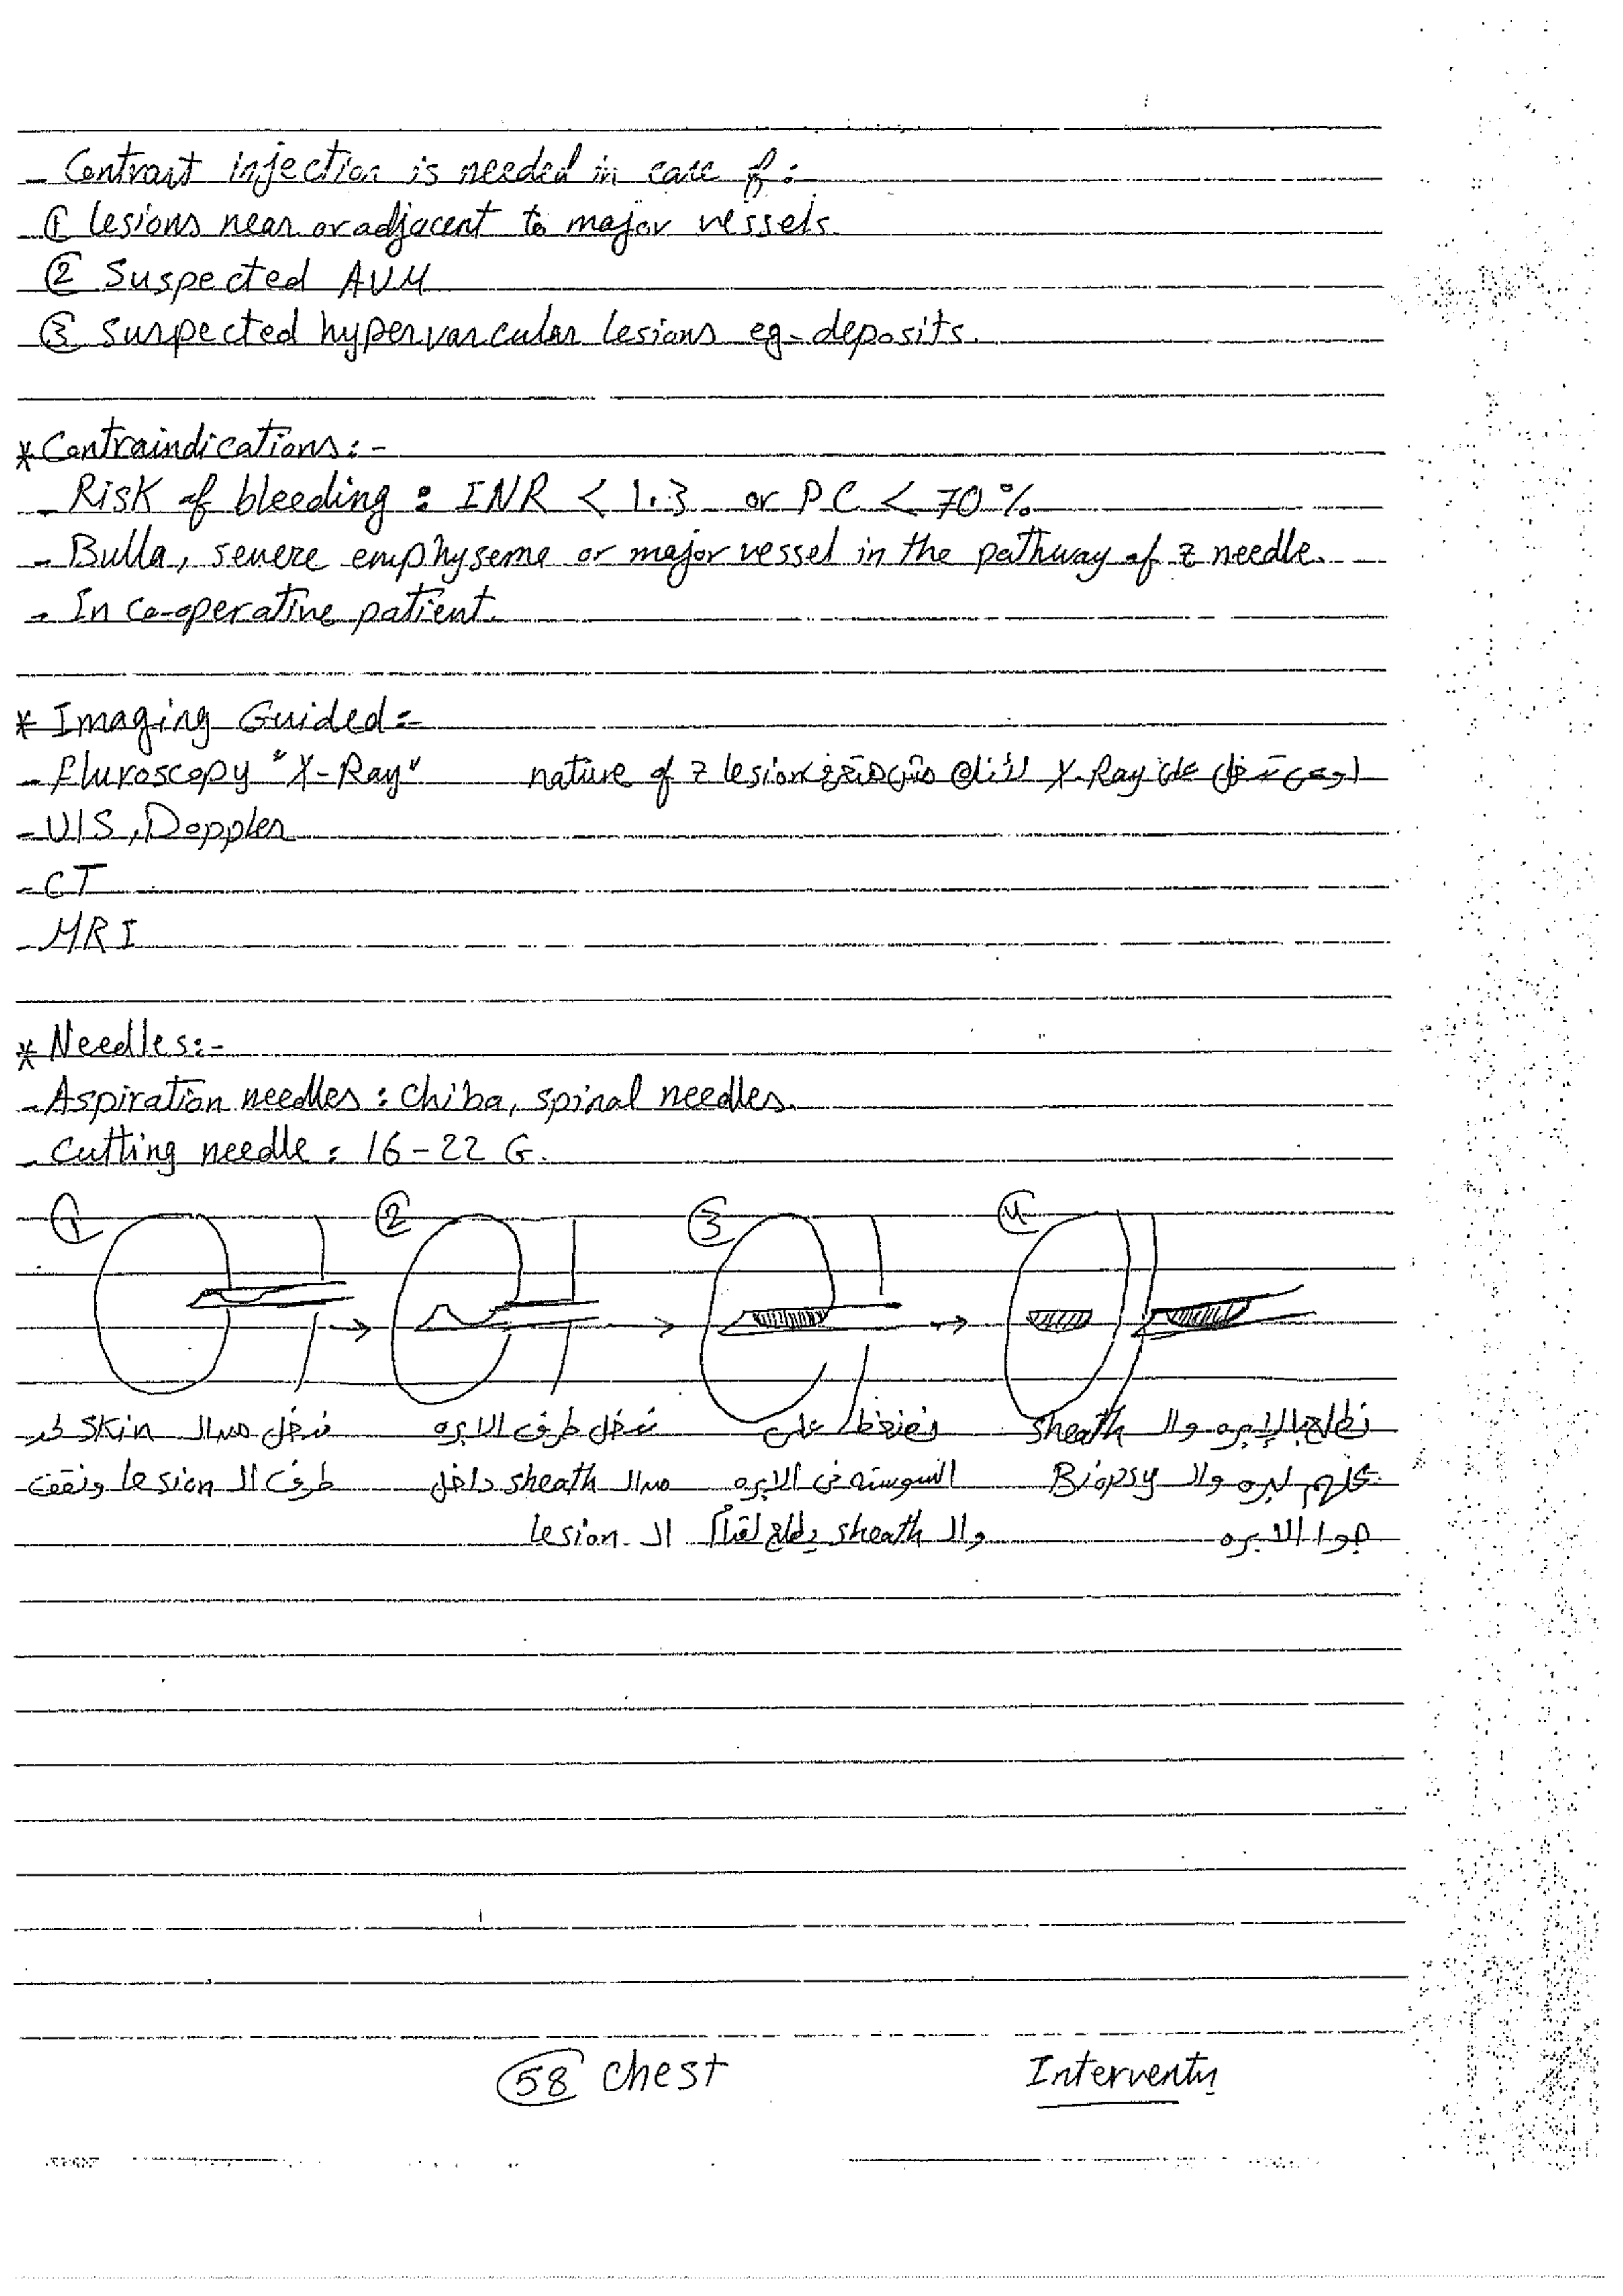 - Contrast injection is needed in case of :
① lesions near or adjacent to major vessels.
② Suspected AVM
③ suspected hypervascular lesions eg- deposits.
* Contraindications:-
- Risk of bleeding : INR < 1.3 or PC < 70%
- Bulla, severe emphyseme or major vessel in the pathway of z needle.
- In co-operative patient.
* Imaging Guided:-
- fluroscopy "X-Ray" nature of z lesion X-Ray
- U/S, Doppler
- CT
- MRI
* Needles:-
- Aspiration needles : chiba, spinal needles.
- Cutting needle : 16-22 G.
① ② ③ ④
ندخل من الـ skin لحد
طرف الـ lesion ونقف
ندخل طرف الابره
من الـ sheath داخل
الـ lesion
ونضغط على
السوسته فى الابره
والـ sheath يطلع لقدام
نطلع بالإبره والـ sheath
كلهم لبره والـ Biopsy
جوا الابره
58 chest
Interventn